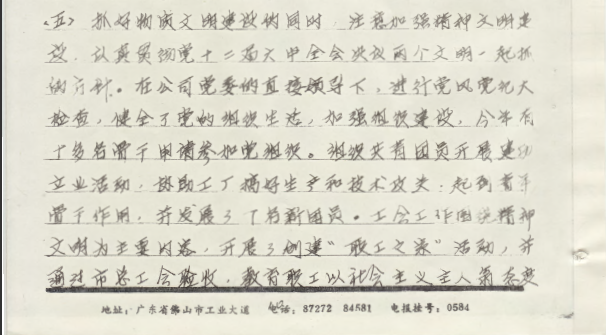 （五）抓好物质文明建设的同时，注意加强精神文明建
设，认真贯彻党十二届六中全会决议两个文明一起抓
的方针。在公司党委的直接领导下，进行党风党纪大
检查，健全了党的组织生活，加强组织建设，今年有
十多名骨干申请参加党组织。组织共青团员开展建功
立业活动，协助工厂搞好生产和技术攻关，起到青年
骨干作用，并发展了7名新团员。工会工作围绕精神
文明为主要内容，开展了创建“职工之家”活动，并
通过市总工会验收，教育职工以社会主义主人翁态度
地址：广东省佛山市工业大道 电话：87272 84581 电报挂号：0584